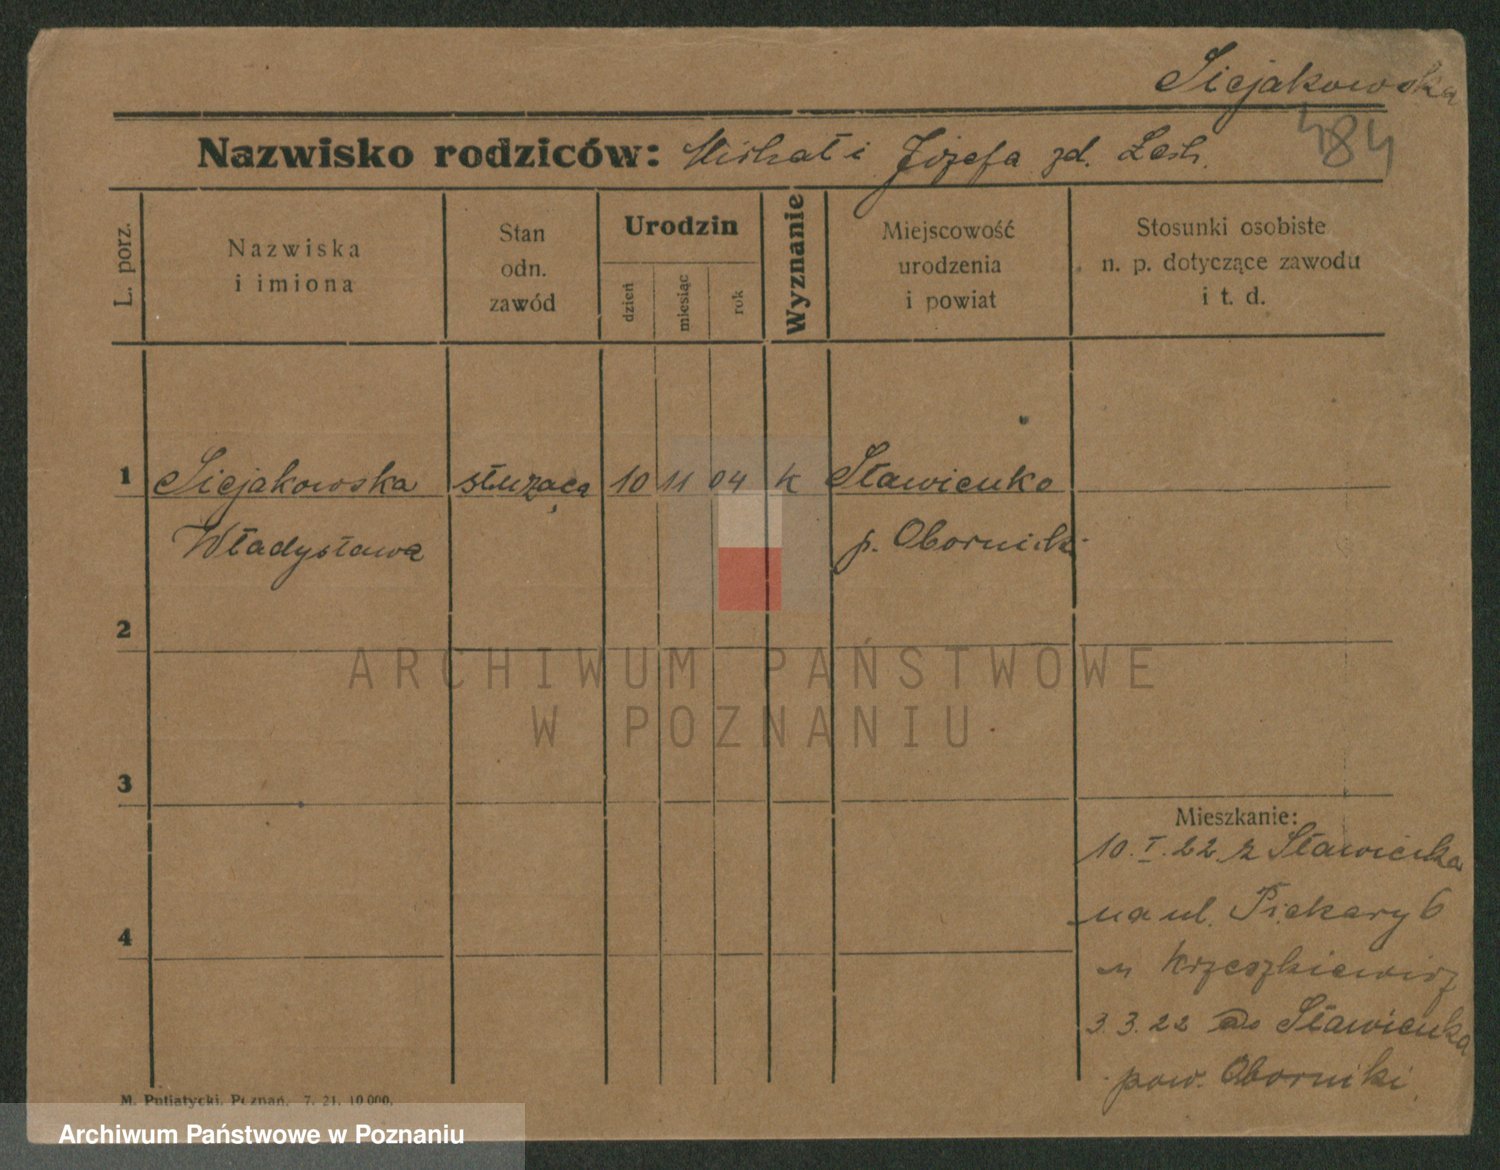 Siejakowska
484
Nazwisko rodziców: Michał i Józefa zd. Lesh.
L. porz.
Nazwiska
i imiona
Stan
odn.
zawód
Urodzin
dzień
miesiąc
rok
Wyznanie
Miejscowość
urodzenia
i powiat
Stosunki osobiste
n. p. dotyczące zawodu
i t. d.
1 Siejakowska służąca 10 11 04 k Sławienko
Władysława p. Oborniki
2
ARCHIWUM PAŃSTWOWE
W POZNANIU
3
Mieszkanie:
10. I. 22 z Sławienka
na ul. Piekary 6
4
u Krzeszkiewicz
3. 3. 22 do Sławienka
pow. Oborniki
M. Putiatycki, Poznań. 7. 21. 10 000.
Archiwum Państwowe w Poznaniu